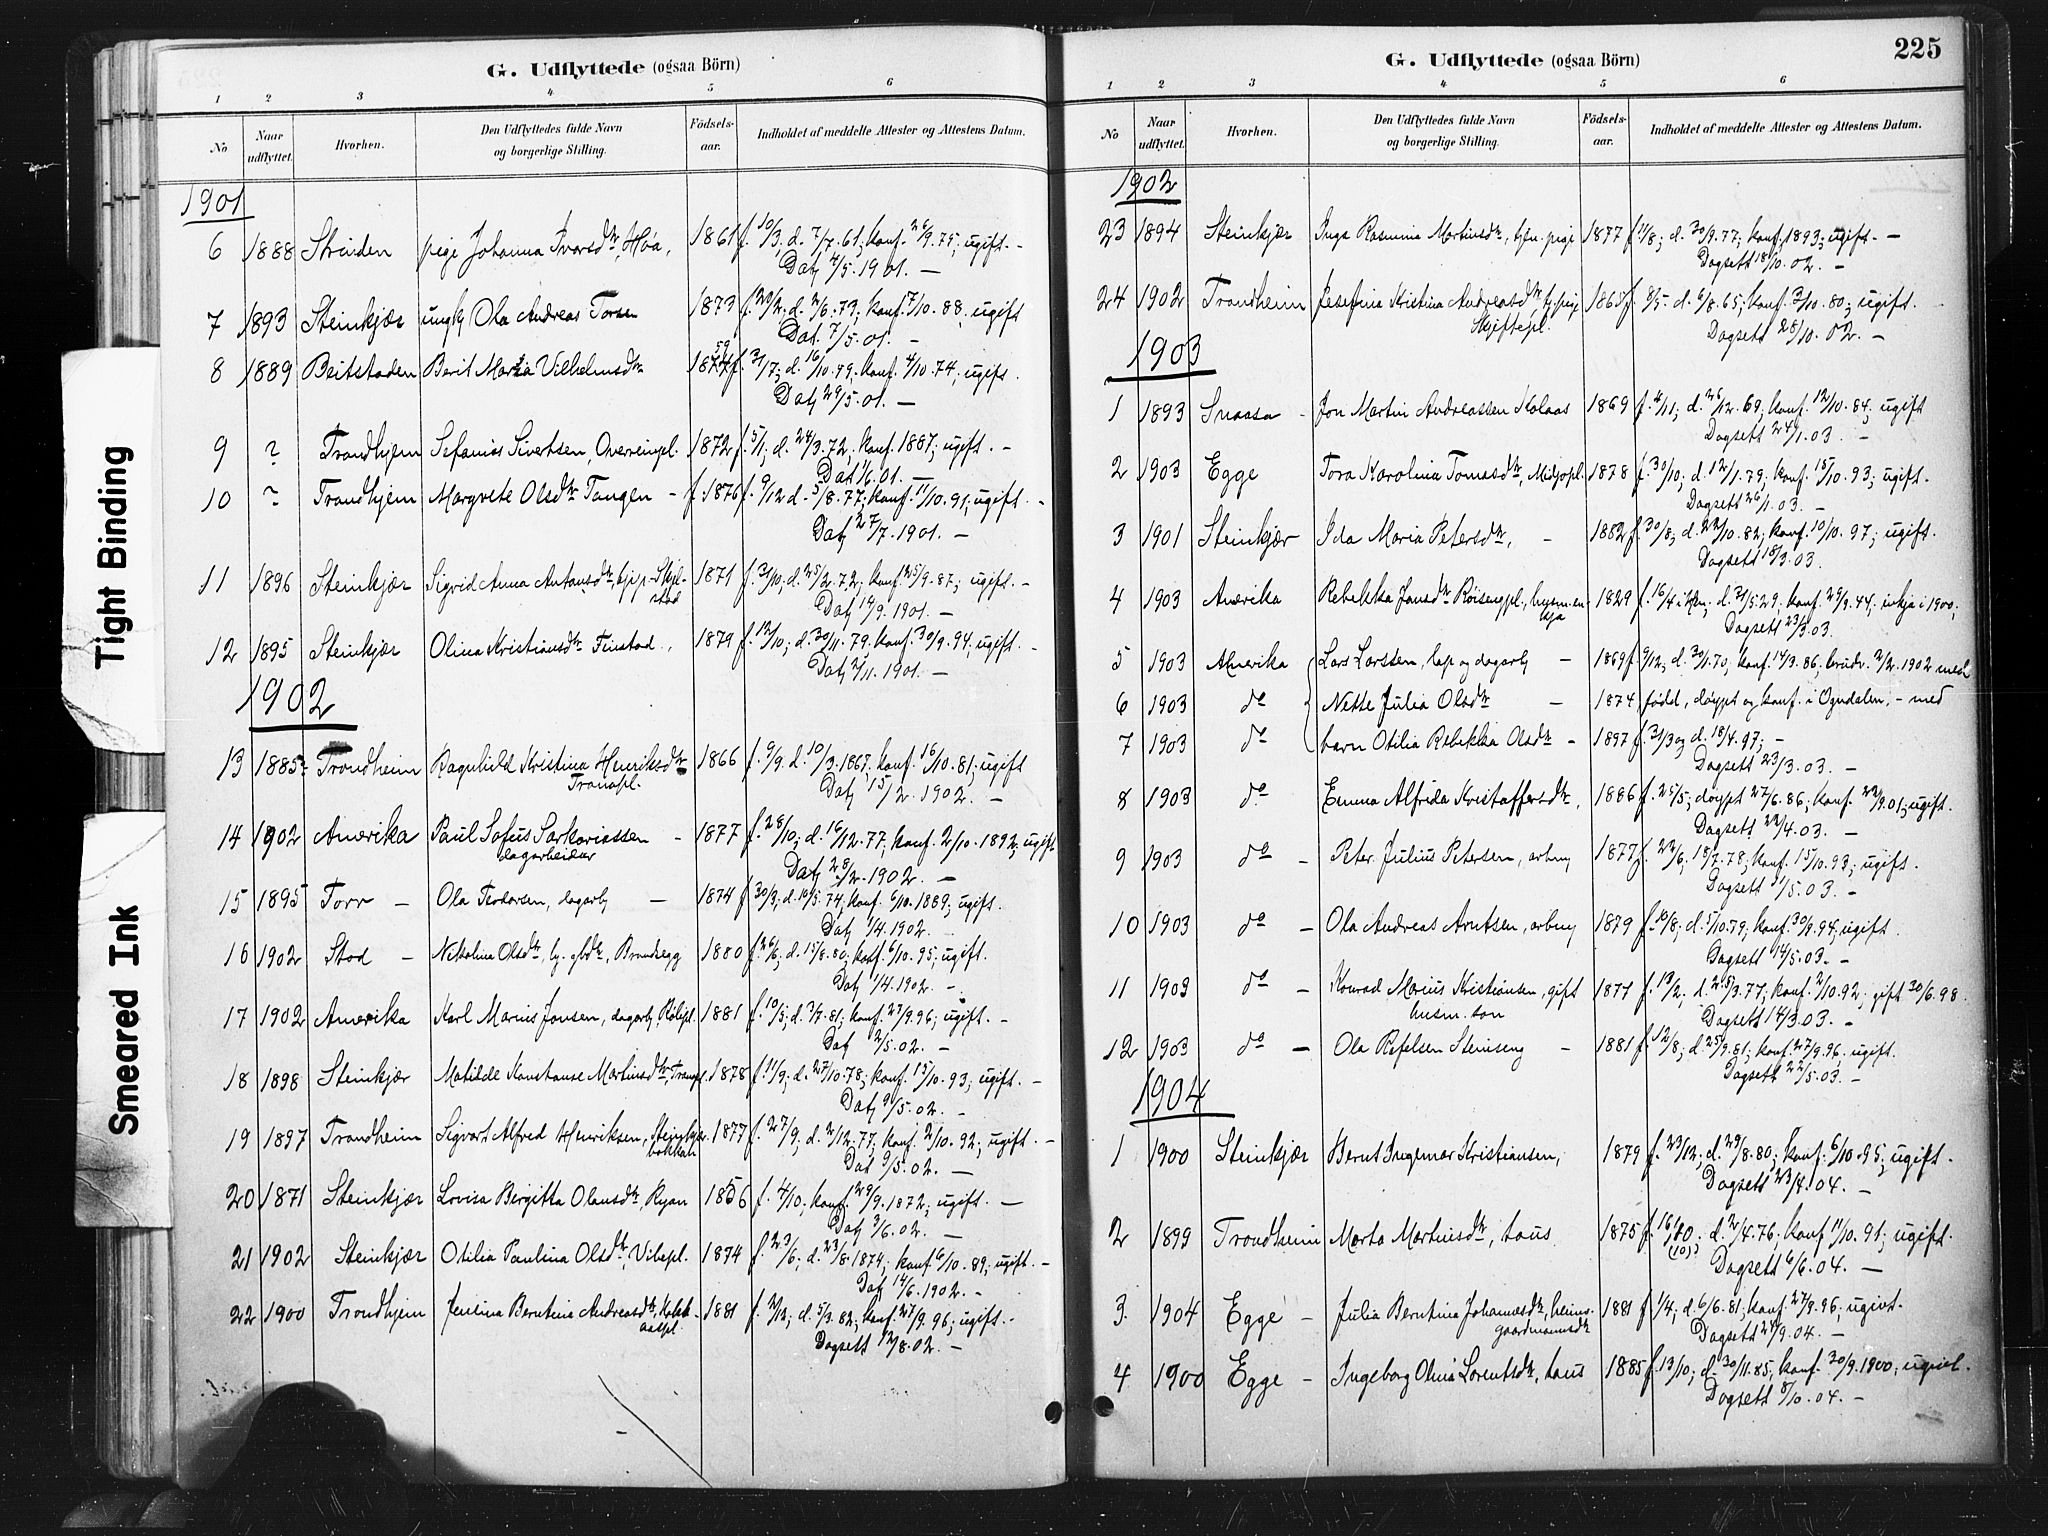 Tight Binding
Smeared Ink
G. Udflyttede (ogsaa Börn)
1 2 3 4 5 6
No Naar udflyttet. Hvorhen. Den Udflyttedes fulde Navn og borgerlige Stilling. Födsels-aar. Indholdet af meddelte Attester og Attestens Datum.
1901
6 1888 Strinden pige Johanna Ivarsdtr, Hoa, 1861 f. 10/3, d. 7/7.61; konf. 26/9.75; ugift. -
Dat. 4/5.1901. -
7 1893 Steinkjær ungk. Ola Andreas Torsen 1873 f. 23/2; d. 2/6.73; konf. 7/10.88; ugift
Dat. 7/5.01. -
8 1889 Beitstaden Berit Maria Vilhelmsdtr 1859 f. 31/7; d. 16/10.59; konf. 4/10.74; ugift.
Dat. 29/5.01. -
9 ? Trondhjem Sefanias Sivertsen, Overreinpl. 1872 f. 5/1; d. 24/3.72; konf. 1887; ugift. -
Dat. 1/6.01. -
10 ? Trondhjem Margrete Olsdtr Tangen - f. 1876 f. 9/12 d. 5/8.77; konf. 11/10.91; ugift. -
Dat. 27/7.1901. -
11 1896 Steinkjær Sigrid Anna Antonsdtr, 1871 f. 31/10; d. 25/2.72; konf. 25/9.87; ugift. -
Dat. 14/9.1901. -
12 1895 Steinkjær Olina Kristiansdtr Finstad, 1879 f. 12/10; d. 30/11.79; konf. 30/9.94; ugift. -
Dat. 2/11.1901. -
1902
13 1885 Trondheim Ragnhild Kristina Henriksdtr 1866 f. 9/9. d. 10/3.1867; konf. 16/10.81; ugift
Tranapl. Dat. 15/2.1902. -
14 1902 Amerika Paul Sofus Sakariassen - 1877 f. 28/10; d. 16/12.77; konf. 2/10.1892; ugift
dagarbeider Dat. 28/2.1902. -
15 1895 Torr - Ola Teodorsen, dagarb. - 1874 f. 30/3; d. 10/5.74; konf. 6/10.1889; ugift.
Dat. 1/4.1902.
16 1902 Stod - Nikolina Olsdtr, Brandsegg 1880 f. 26/6; d. 15/8.80; konf. 6/10.95; ugift.
Dat. 1/4.1902. -
17 1902 Amerika Karl Marius Jonsen, dagarb. 1881 f. 10/5; d. 3/7.81; konf. 27/9.96; ugift. -
Dat. 2/5.02. -
18 1898 Steinkjær Matilde Konstanse Martinsdtr, Tranpl. 1878 f. 11/9; d. 27/10.78; konf. 15/10.93; ugift. -
Dat. 9/5.02. -
19 1897 Trondheim Sigvart Alfred Henriksen, 1877 f. 27/9; d. 2/12.77; konf. 2/10.92; ugift. -
bakkan Dat. 9/5.02. -
20 1871 Steinkjær Lovisa Bergitta Olausdtr, Ryan 1856 f. 4/10; konf. 29/9.1872; ugift. -
Dat. 3/6.02. -
21 1902 Steinkjær Otilia Paulina Olsdtr, Vibepl. 1874 f. 23/6; d. 23/8.1874; konf. 6/10.89; ugift. -
Dat. 14/6.1902. -
22 1900 Trondhjem Jensina Berntina Andreasdtr, 1881 f. 2/12; d. 5/3.82; konf. 27/9.96; ugift. -
Dagsett 12/8.02. -
225
G. Udflyttede (ogsaa Börn)
1 2 3 4 5 6
No Naar udflyttet. Hvorhen. Den Udflyttedes fulde Navn og borgerlige Stilling. Födsels-aar. Indholdet af meddelte Attester og Attestens Datum.
1902
23 1894 Steinkjær Inga Rasmina Martinsdtr, tjen. pige 1877 f. 11/8; d. 30/9.77; konf. 1893; ugift. -
Dagsett 18/10.02. -
24 1902 Trondheim Josefina Kristina Andreasdtr, 1865 f. 8/5. d. 6/8.65; konf. 3/10.80; ugift.
Skjeftepl. Dagsett 28/10.02. -
1903
1 1893 Snaasa - Jon Martin Andreassen Kolaas 1869 f. 4/11; d. 26/12.69; konf. 12/10.84; ugift
Dagsett 24/1.03. -
2 1903 Egge Tora Karolina Tomasdtr, 1878 f. 30/10; d. 12/1.79; konf. 15/10.93; ugift.
Dagsett 26/1.03. -
3 1901 Steinkjær Ida Maria Petersdtr, - 1882 f. 30/8; d. 22/10.82; konf. 10/10.97; ugift.
Dagsett 18/3.03.
4 1903 Amerika Rebekka Jonsdtr Röisengpl., husm.en- 1829 f. 16/4 d. 31/5.29. konf. 29/9.44; enkja i 1900;
kja Dagsett 23/3.03.
5 1903 Amerika Lars Larssen, dagarb. - 1869 f. 9/12; d. 30/1.70; konf. 14/3.86; brudv. 2/2.1902 med
6 1903 do Nette Julia Olsdtr - 1874 född, döypt og konf. i Ogndalen, - med
7 1903 do barn Otilia Rebekka Olsdtr - 1897 f. 31/3 og d. 18/4.97; -
Dagsett 23/3.03. -
8 1903 do Emma Alfrida Kristoffersdtr, 1886 f. 25/5; döypt 27/6.86; konf. 22/9.01; ugift.
Dagsett 22/4.03. -
9 1903 do - Peter Julius Petersen, 1877 f. 22/6; 18/7.78; konf. 15/10.93; ugift.
Dagsett 1/5.03. -
10 1903 do - Ola Andreas Arntsen, 1879 f. 10/8; d. 5/10.79; konf. 30/9.94; ugift.
Dagsett 14/5.03. -
11 1903 do - Konrad Marius Kristiansen, gift 1877 f. 13/2; d. 25/3.77; konf. 2/10.92; gift 30/6.98.
husm. son Dagsett 14/3.03. -
12 1903 do - Ola Steinseng - 1881 f. 12/8; d. 25/9.81; konf. 27/9.96. ugift.
Dagsett 22/5.03. -
1904
1 1900 Steinkjær Bernt Ingemar Kristiansen, 1879 f. 23/12; d. 29/8.80; konf. 6/10.95; ugift.
Dagsett 23/4.04. -
2 1899 Trondheim Marta Martinsdtr, taus 1875 f. 16/10. d. 2/4.76; konf. 11/10.91; ugift.
(10)? Dagsett 6/6.04. -
3. 1904 Egge - Julia Berntina Johannesdtr, heims- 1881 f. 1/4; d. 6/6.81; konf. 27/9.96; ugivt.
gaardmannsdtr Dagsett 24/9.04. -
4 1900 Egge - Ingeborg Olina Lorentsdtr, taus 1885 f. 13/10; d. 30/11.85; konf. 30/9.1900; ugivt.
Dagsett 8/10.04. -